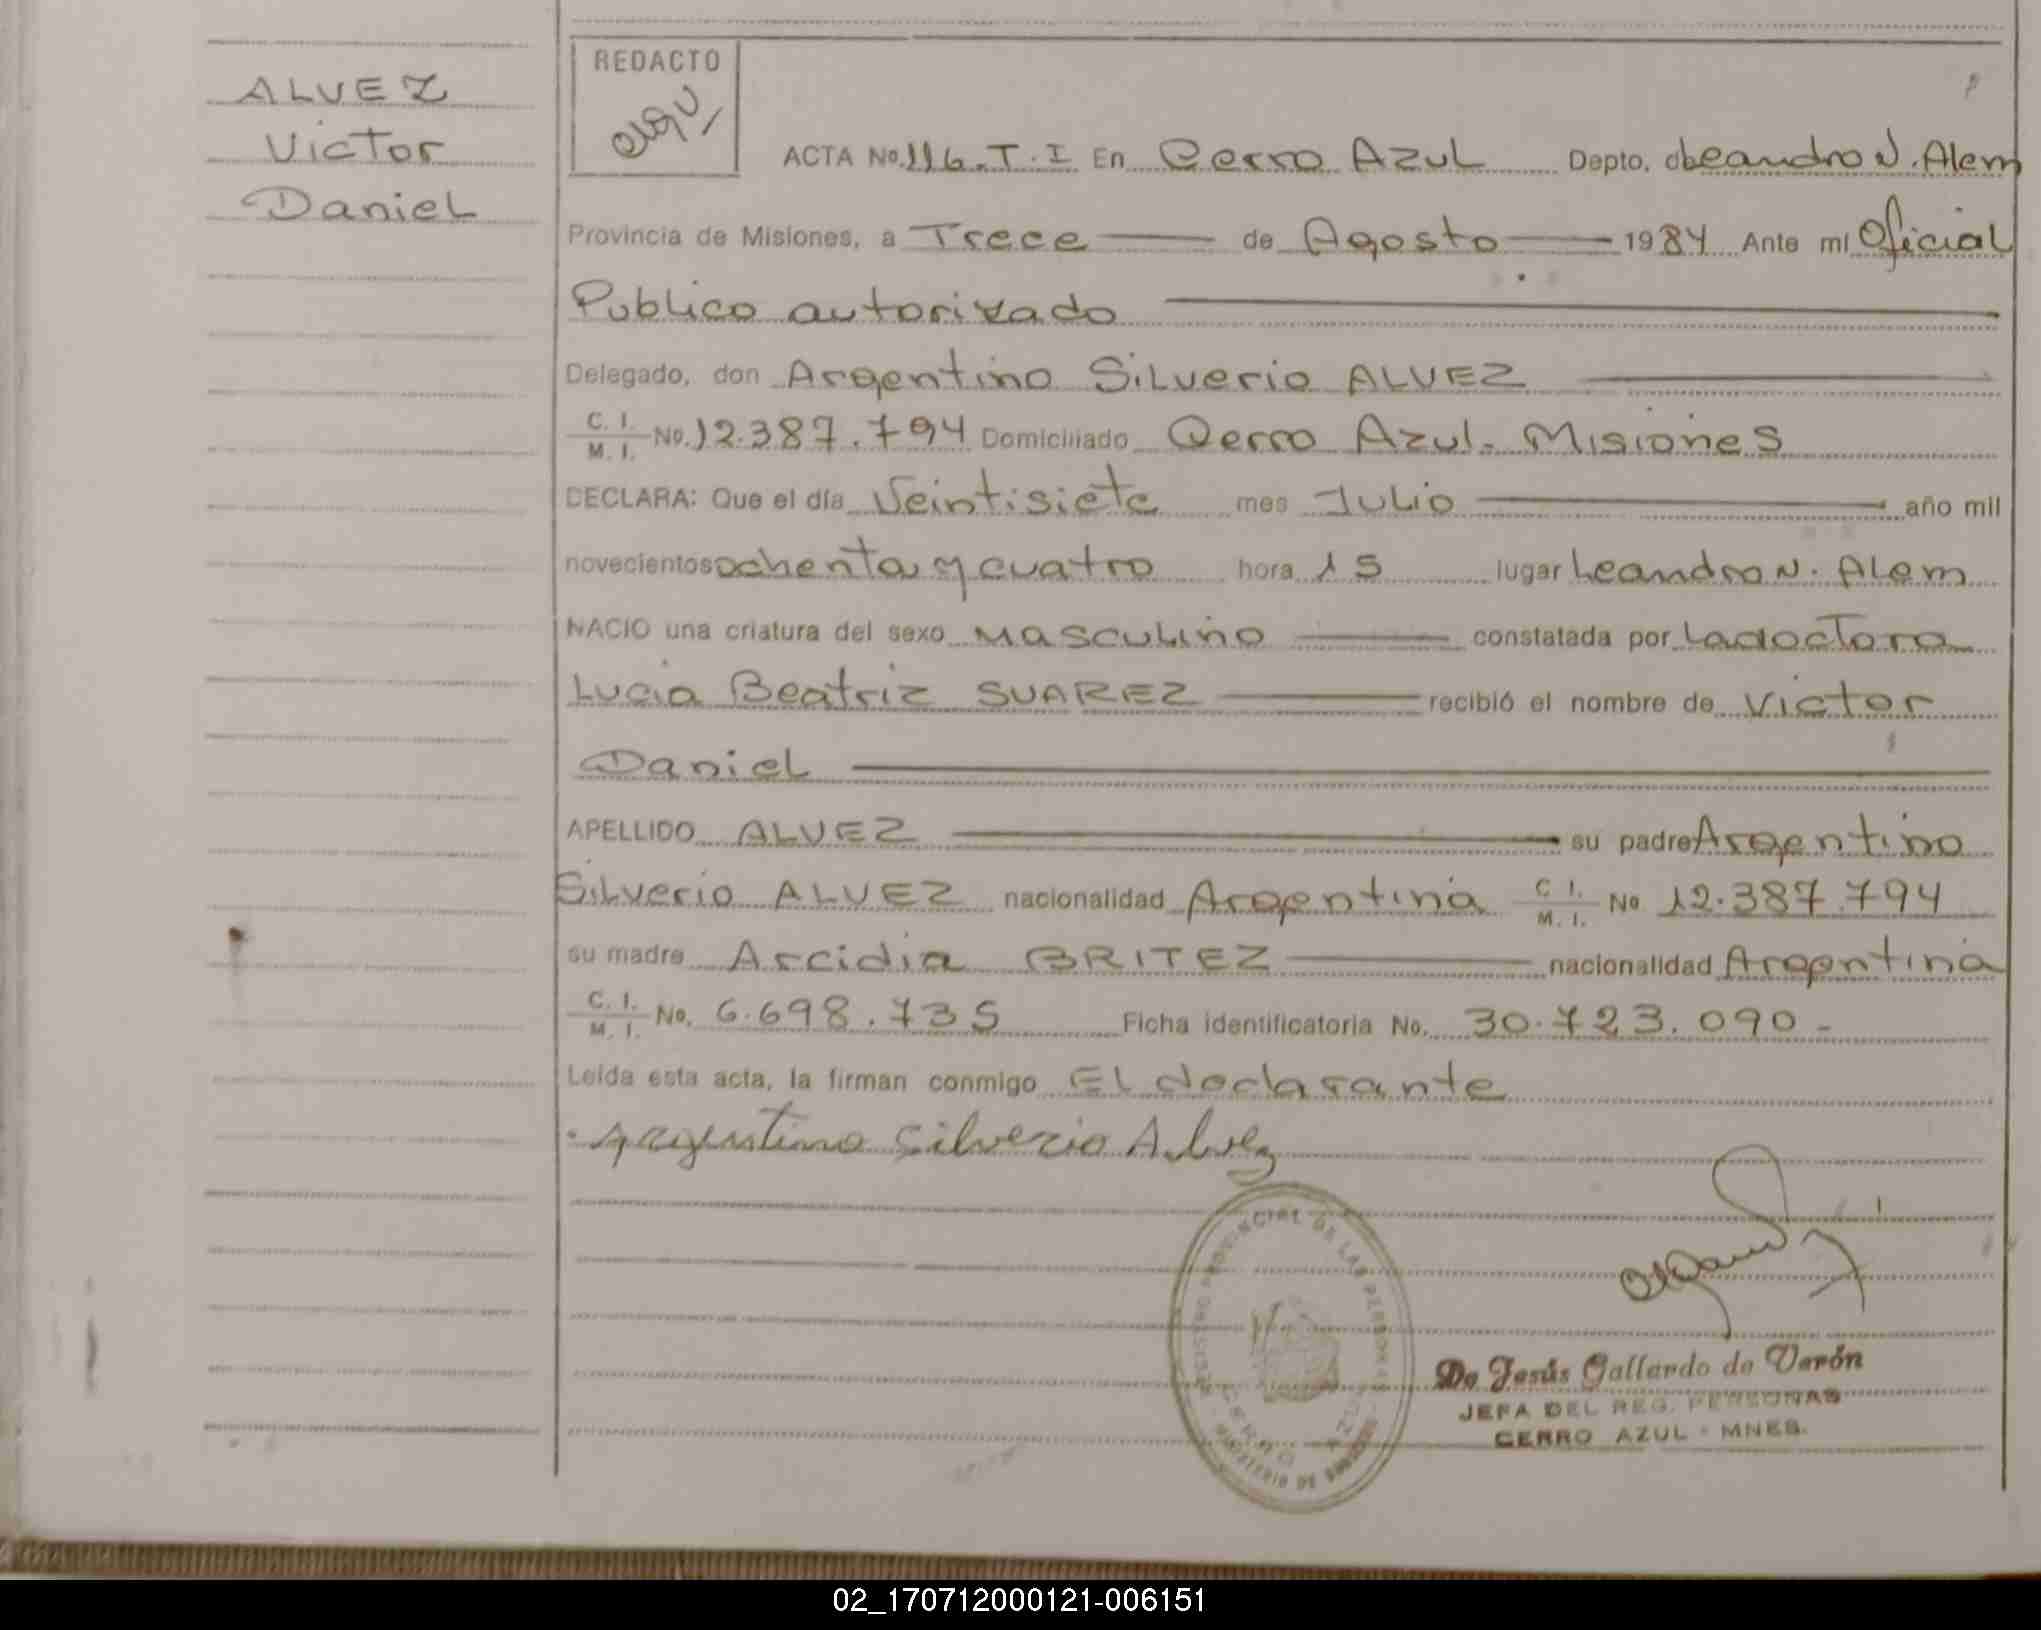 ALVEZ
Victor
Daniel
REDACTO
ACTA No. 116. T. I En Cerro Azul Depto. de Leandro N. Alem
Provincia de Misiones, a Trece de Agosto 1984 Ante mi Oficial
Publico autorizado
Delegado, don Argentino Silverio ALVEZ
C. I.
M. I. No. 12.387.794 Domiciliado Cerro Azul - Misiones
DECLARA: Que el día Veintisiete mes Julio año mil
novecientos ochenta y cuatro hora 15 lugar Leandro N. Alem
NACIO una criatura del sexo Masculino constatada por La doctora
Lucia Beatriz SUAREZ recibió el nombre de Victor
Daniel
APELLIDO ALVEZ su padre Argentino
Silverio ALVEZ nacionalidad Argentina C I. M. I. No 12.387.794
su madre Arcidia BRITEZ nacionalidad Argentina
C. I.
M. I. No. 6.698.735 Ficha identificatoria No. 30.723.090 -
Leída esta acta, la firman conmigo El declarante
Argentino Silverio Alvez
REGISTRO PROVINCIAL DE LAS PERSONAS
CERRO AZUL
MINISTERIO DE GOBIERNO
De Jesús Gallardo de Verón
JEFA DEL REG. PERSONAS
CERRO AZUL - MNES.
02_170712000121-006151